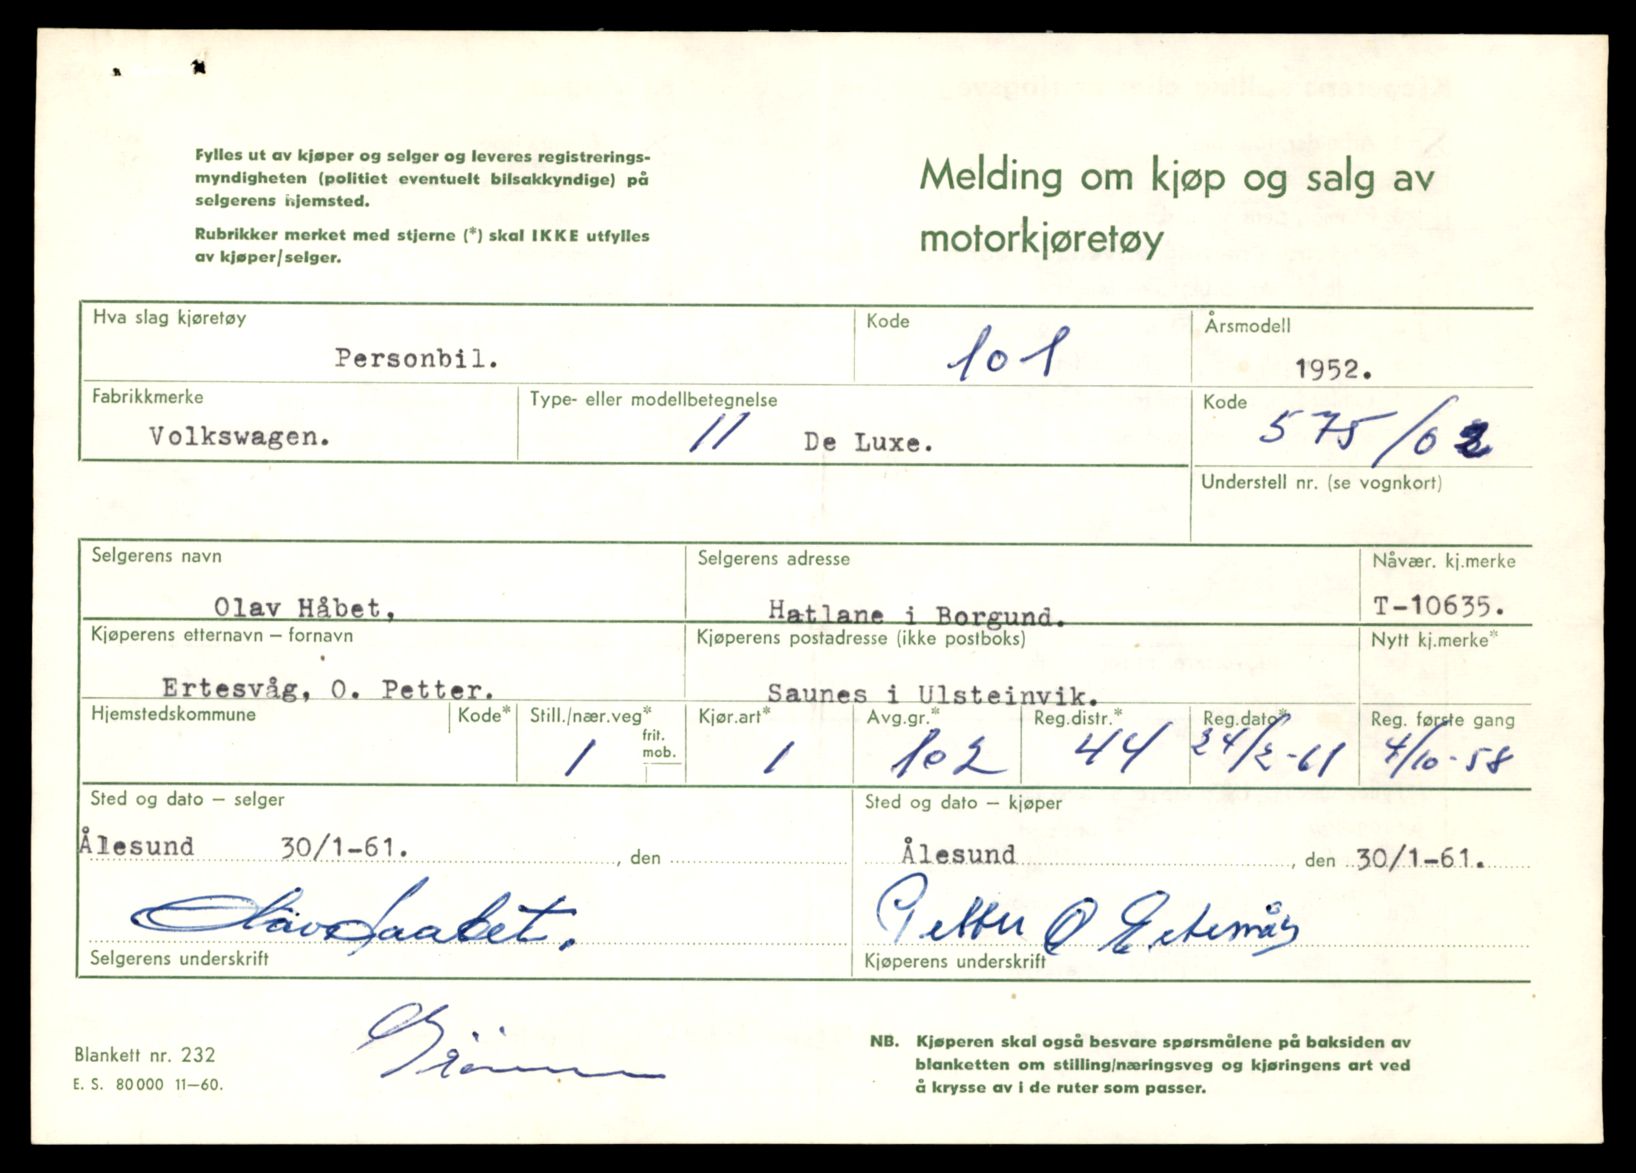 Fylles ut av kjøper og selger og leveres registrerings-
myndigheten (politiet eventuelt bilsakkyndige) på
selgerens hjemsted.
Rubrikker merket med stjerne (*) skal IKKE utfylles
av kjøper/selger.
Melding om kjøp og salg av
motorkjøretøy
Hva slag kjøretøy
Kode
Årsmodell
Personbil.
101
1952.
Fabrikkmerke
Type- eller modellbetegnelse
Kode
Volkswagen.
11 De Luxe.
575/02
Understell nr. (se vognkort)
Selgerens navn
Selgerens adresse
Nåvær. kj.merke
Olav Håbet,
Hatlane i Borgund.
T-10635.
Kjøperens etternavn – fornavn
Kjøperens postadresse (ikke postboks)
Nytt kj.merke*
Ertesvåg, O. Petter.
Saunes i Ulsteinvik.
Hjemstedskommune
Kode*
Still./nær.veg*
frit.
mob.
Kjør.art*
Avg.gr.*
Reg.distr.*
Reg.dato*
Reg. første gang
1
1
102
44
24/2-61
4/10-58
Sted og dato – selger
Sted og dato – kjøper
Ålesund 30/1-61. , den
Ålesund , den 30/1-61.
Olav Haabet.
Petter O Ertesvåg
Selgerens underskrift
Kjøperens underskrift
Blankett nr. 232
E. S. 80000 11—60.
NB. Kjøperen skal også besvare spørsmålene på baksiden av
blanketten om stilling/næringsveg og kjøringens art ved
å krysse av i de ruter som passer.